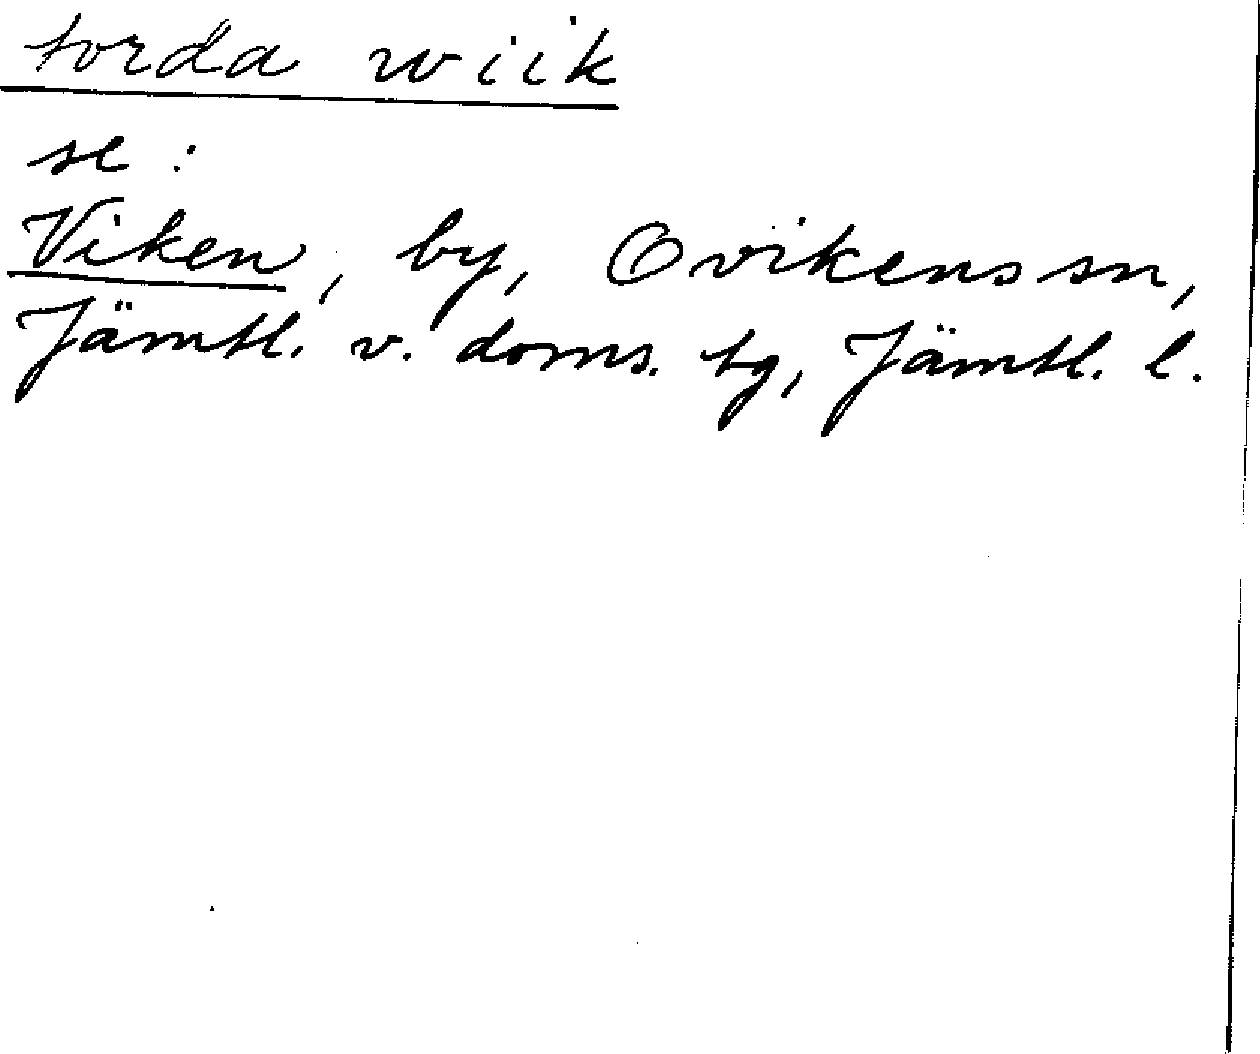 torda wiik
se:
Viken, by, Ovikens sn,
Jämtl. v. doms. tg, Jämtl. l.